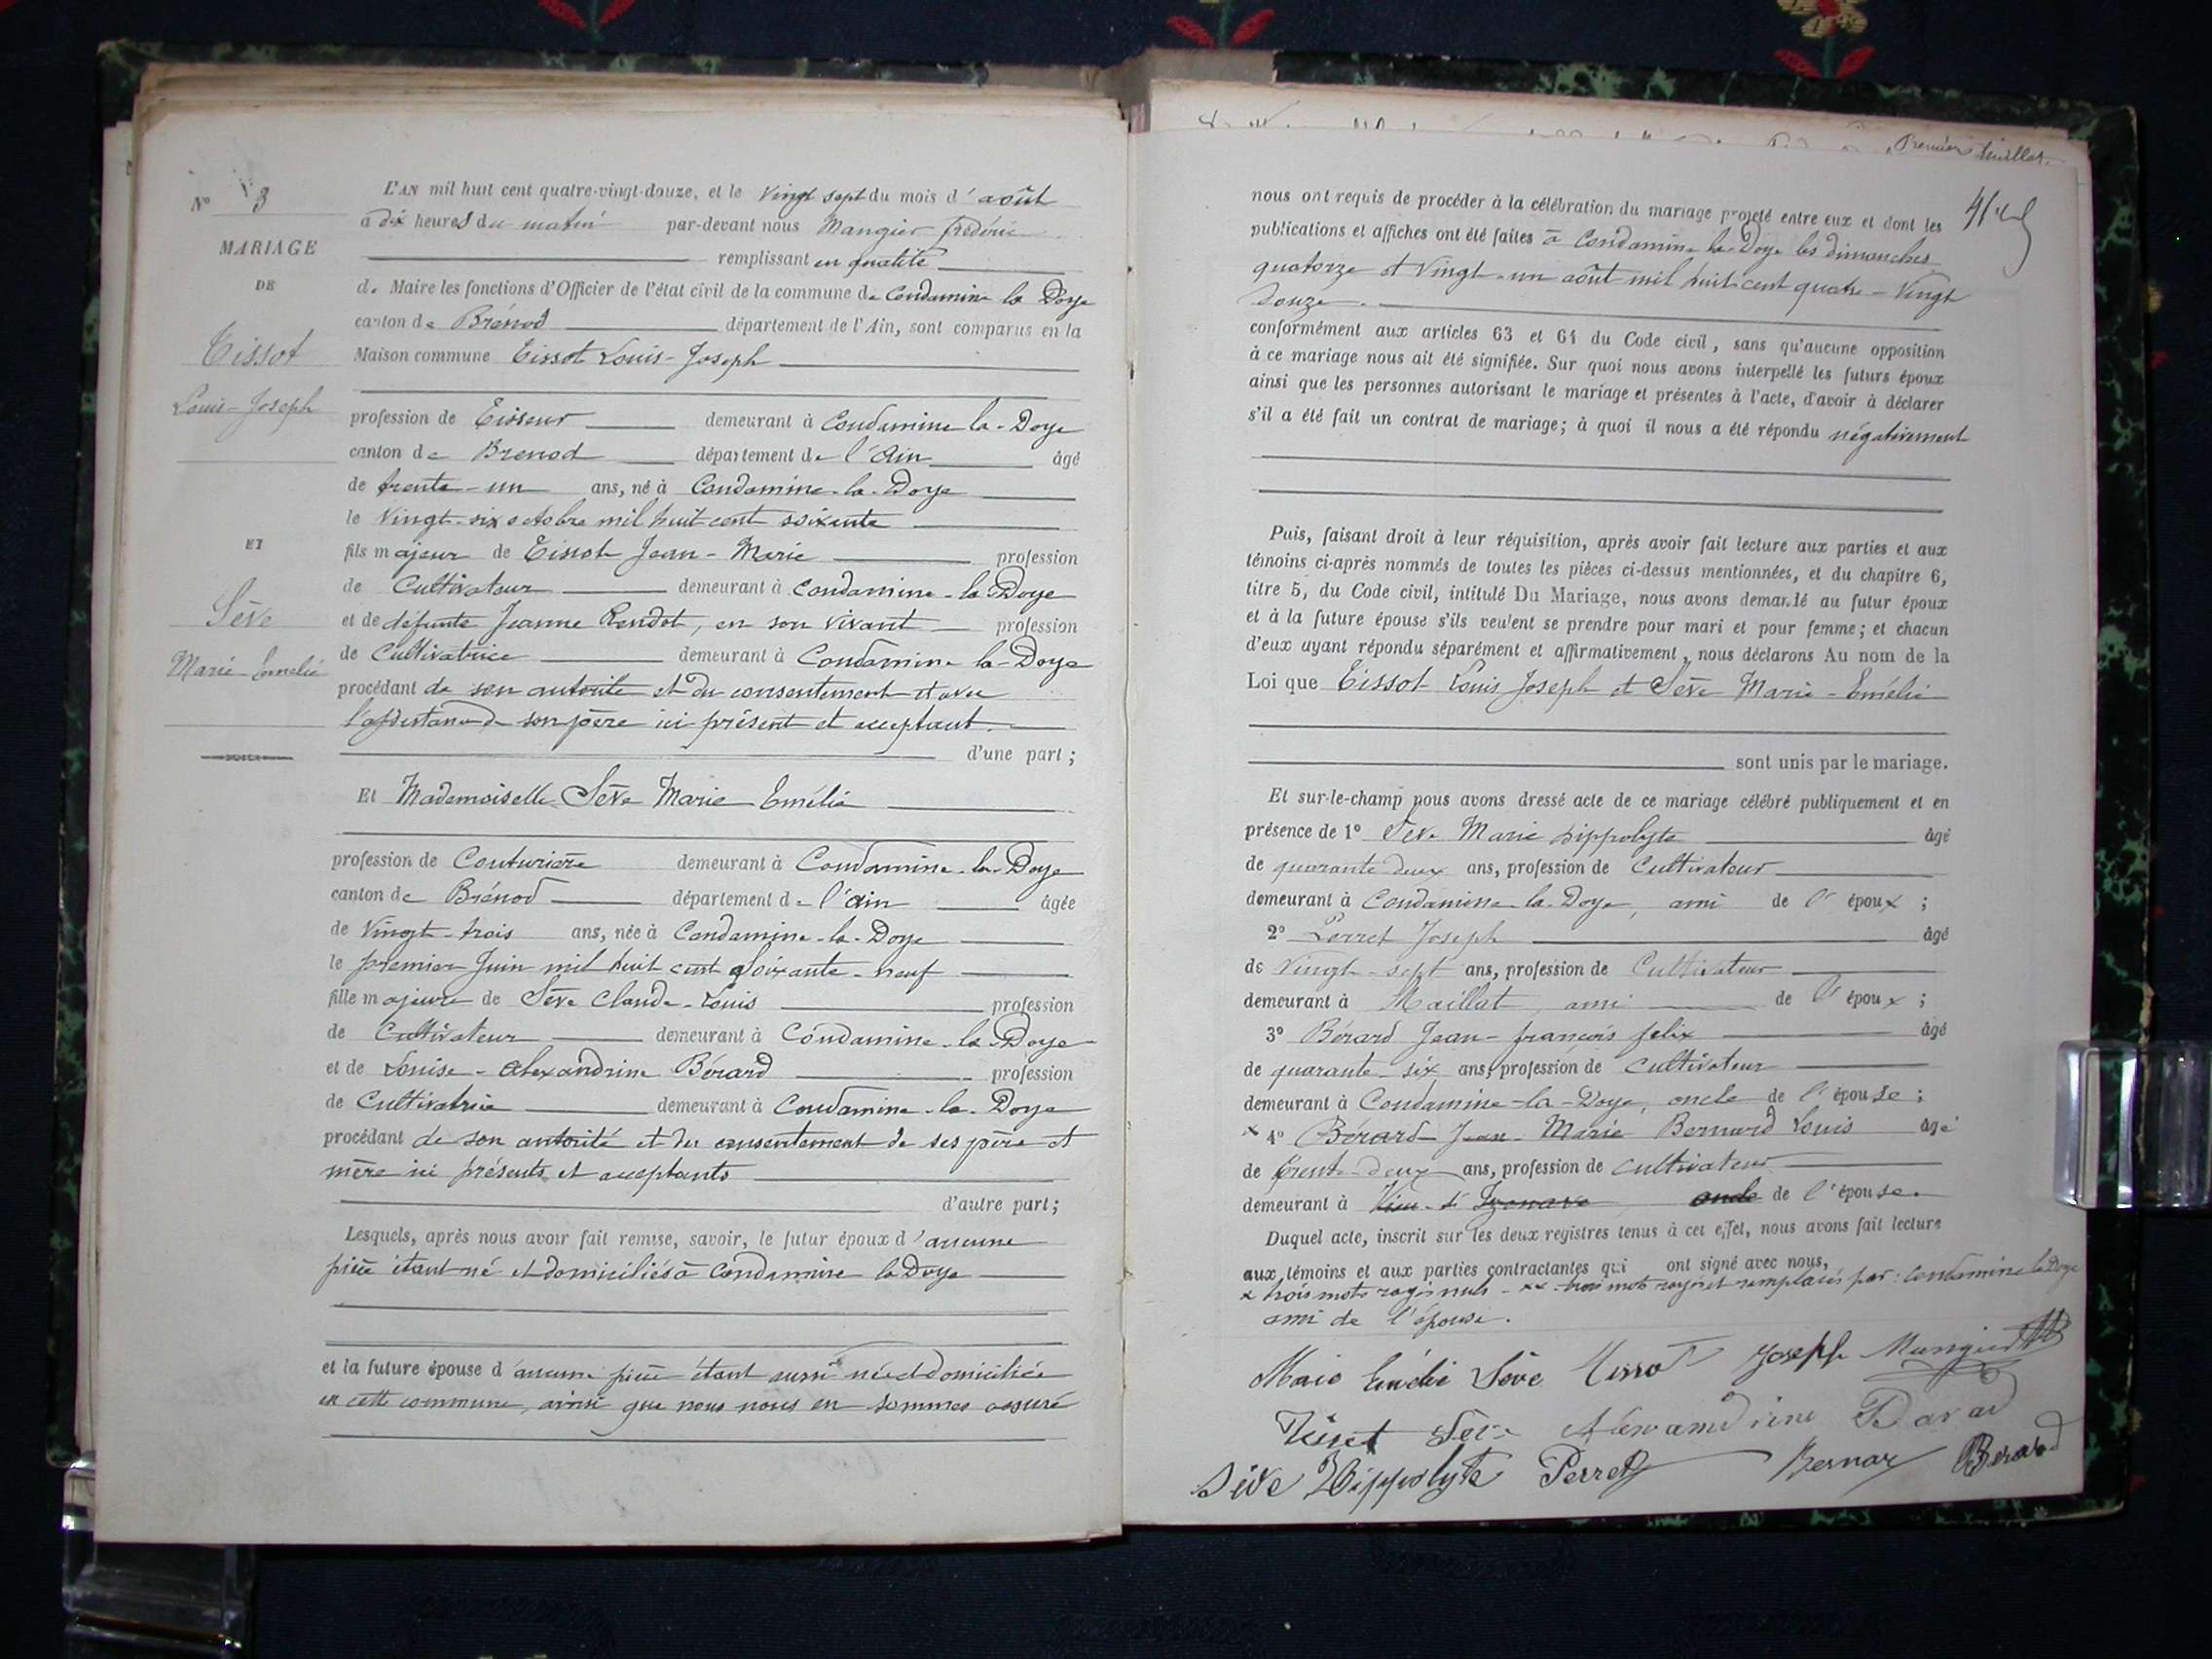 N° 3
MARIAGE
DE
Tissot
Louis-Joseph
ET
Sève
Marie Emélie
L'AN mil huit cent quatre-vingt-douze, et le vingt sept du mois d'août
à dix heures du matin par-devant nous Mangier frédéric
remplissant en qualité
de Maire les fonctions d'Officier de l'état civil de la commune de Condamine la Doye
canton de Brénod département de l'Ain, sont comparus en la
Maison commune Tissot Louis-Joseph
profession de Tisseur demeurant à Condamine la-Doye
canton de Brenod département de l'Ain âgé
de trente-un ans, né à Condamine-la-Doye
le vingt-six octobre mil huit cent soixante
fils majeur de Tissot Jean-Marie profession
de Cultivateur demeurant à Condamine-la-Doye
et de défunte Jeanne Rendot, en son vivant profession
de Cultivatrice demeurant à Condamine la-Doye
procédant de son autorité et du consentement et avec
l'assistance de son père ici présent et acceptant.
d'une part ;
Et Mademoiselle Sève Marie Emélie
profession de Couturière demeurant à Condamine-la-Doye
canton de Brénod département de l'ain âgée
de Vingt-trois ans, née à Condamine-la-Doye
le premier Juin mil huit cent soixante-neuf
fille majeure de Sève Claude-Louis profession
de Cultivateur demeurant à Condamine-la-Doye
et de Louise-Alexandrine Bérard profession
de Cultivatrice demeurant à Condamine-la-Doye
procédant de son autorité et du consentement de ses père et
mère ici présents et acceptants
d'autre part ;
Lesquels, après nous avoir fait remise, savoir, le futur époux d'aucune
pièce étant né et domiciliés à Condamine la Doye
et la future épouse d'aucune pièce étant aussi née et domiciliée
en cette commune, ainsi que nous nous en sommes assuré
Premier feuillet.
nous ont requis de procéder à la célébration du mariage projeté entre eux et dont les
publications et affiches ont été faites à Condamine la-Doye les dimanches
quatorze et Vingt-un août mil huit cent quatre-Vingt
douze.
conformément aux articles 63 et 64 du Code civil, sans qu'aucune opposition
à ce mariage nous ait été signifiée. Sur quoi nous avons interpellé les futurs époux
ainsi que les personnes autorisant le mariage et présentes à l'acte, d'avoir à déclarer
s'il a été fait un contrat de mariage ; à quoi il nous a été répondu négativement
Puis, faisant droit à leur réquisition, après avoir fait lecture aux parties et aux
témoins ci-après nommés de toutes les pièces ci-dessus mentionnées, et du chapitre 6,
titre 5, du Code civil, intitulé Du Mariage, nous avons demandé au futur époux
et à la future épouse s'ils veulent se prendre pour mari et pour femme ; et chacun
d'eux ayant répondu séparément et affirmativement, nous déclarons Au nom de la
Loi que Tissot Louis Joseph et Sève Marie-Emélie
sont unis par le mariage.
Et sur-le-champ nous avons dressé acte de ce mariage célébré publiquement et en
présence de 1° Sève Marie hippolyte âgé
de quarante deux ans, profession de Cultivateur
demeurant à Condamine la-Doye, ami de l'époux ;
2° Perret Joseph âgé
de Vingt-sept ans, profession de Cultivateur
demeurant à Maillat, ami de l'époux ;
3° Bérard Jean-françois félix âgé
de quarante-six ans, profession de cultivateur
demeurant à Condamine-la-Doye, oncle de l'épouse ;
x 4° Bérard Jean-Marie Bernard Louis âgé
de trente-deux ans, profession de cultivateur
demeurant à Vieu-d'Izenave, oncle de l'épouse.
Duquel acte, inscrit sur les deux registres tenus à cet effet, nous avons fait lecture
aux témoins et aux parties contractantes qui ont signé avec nous,
x trois mots rayés nuls - xx trois mots rayés et remplacés par : Condamine la Doye
ami de l'épouse.
Marie Emélie Sève Tissot Joseph Mangier
Tissot Sève Alexandrine Bérard
Sève Hippolyte Perret Bernard Berard